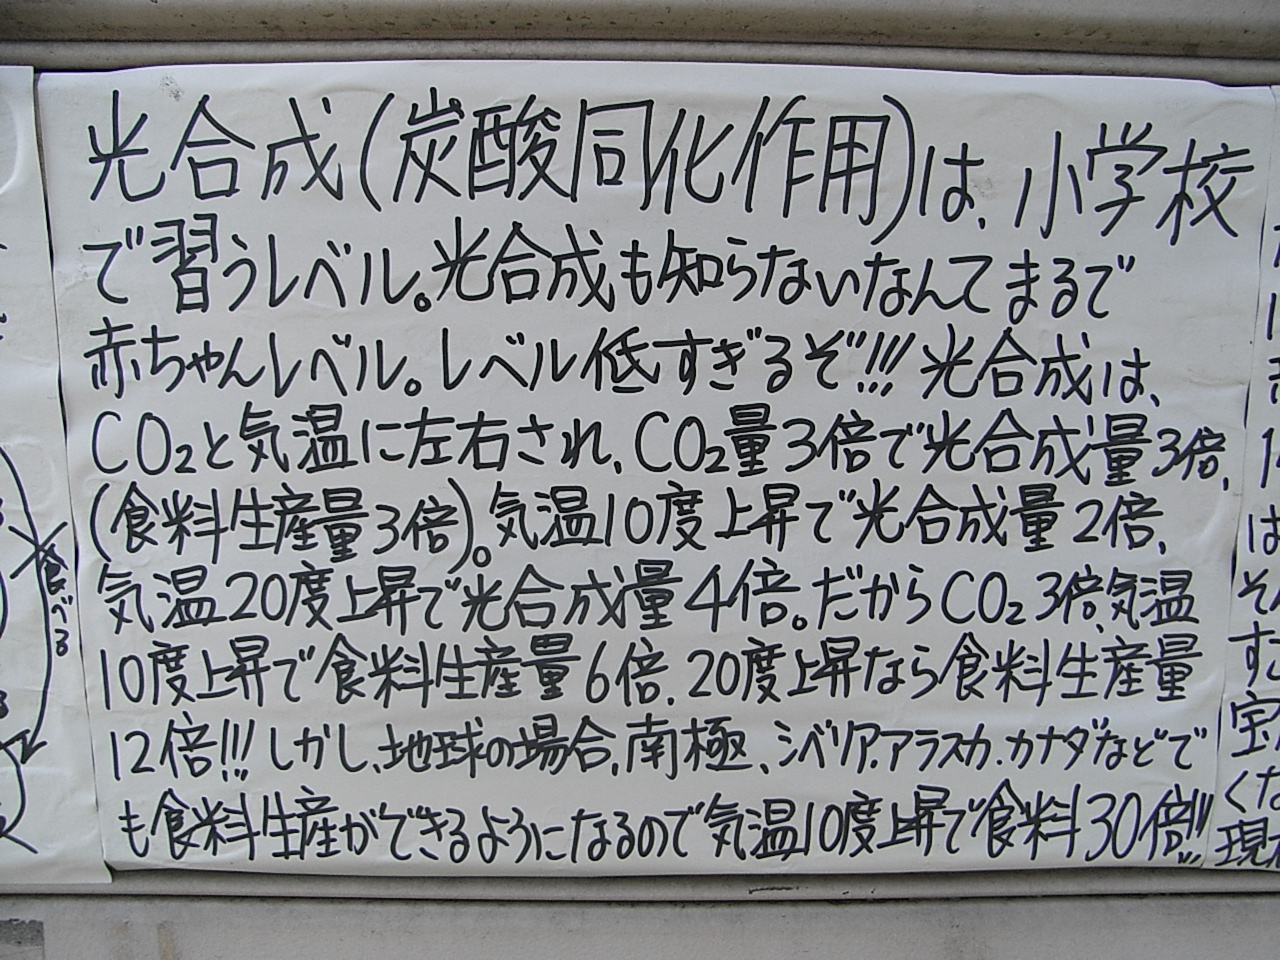 光合成(炭酸同化作用)は、小学校
で習うレベル。光合成も知らないなんてまるで
赤ちゃんレベル。レベル低すぎるぞ!!!光合成は、
CO₂と気温に左右され、CO₂量3倍で光合成量3倍、
(食料生産量3倍)。気温10度上昇で光合成量2倍、
気温20度上昇で光合成量4倍。だからCO₂3倍、気温
10度上昇で食料生産量6倍、20度上昇なら食料生産量
12倍!!!しかし、地球の場合、南極、シベリア、アラスカ、カナダなどで
も食料生産ができるようになるので気温10度上昇で食料30倍!!!
食べる
は
そ
す
宝
くな
現